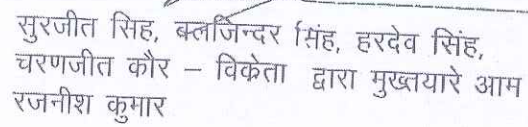 सुरजीत सिह, बलजिन्दर सिंह, हरदेव सिंह,
चरणजीत कौर – विकेता द्वारा मुख्तयारे आम
रजनीश कुमार